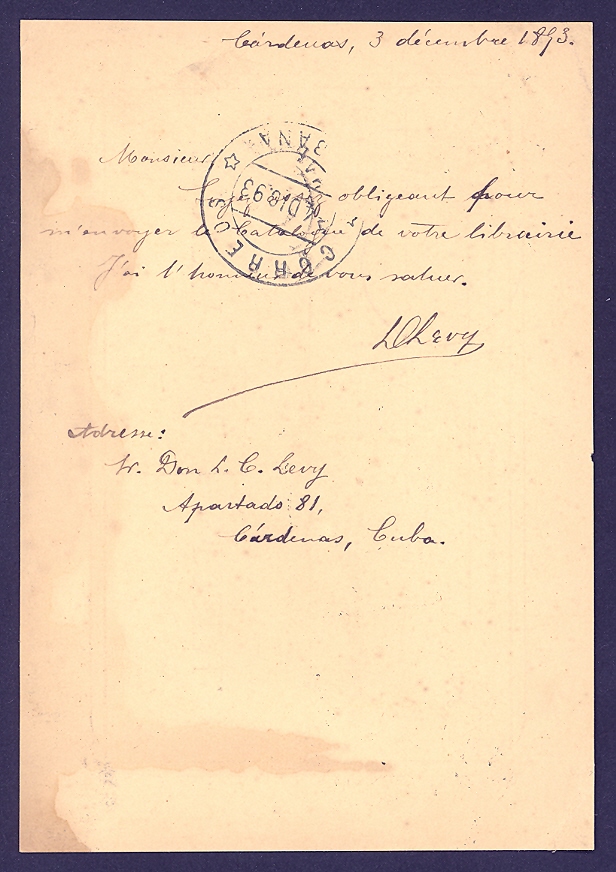 Cárdenas, 3 décembre 1893.
Monsieur,
Soyez assez obligeant pour
m'envoyer le Catalogue de votre librairie
J'ai l'honneur de vous saluer.
LCLevy
Adresse:
Sr. Don L. C. Levy
Apartado 81,
Cárdenas, Cuba.
CORREOS
DIC 93